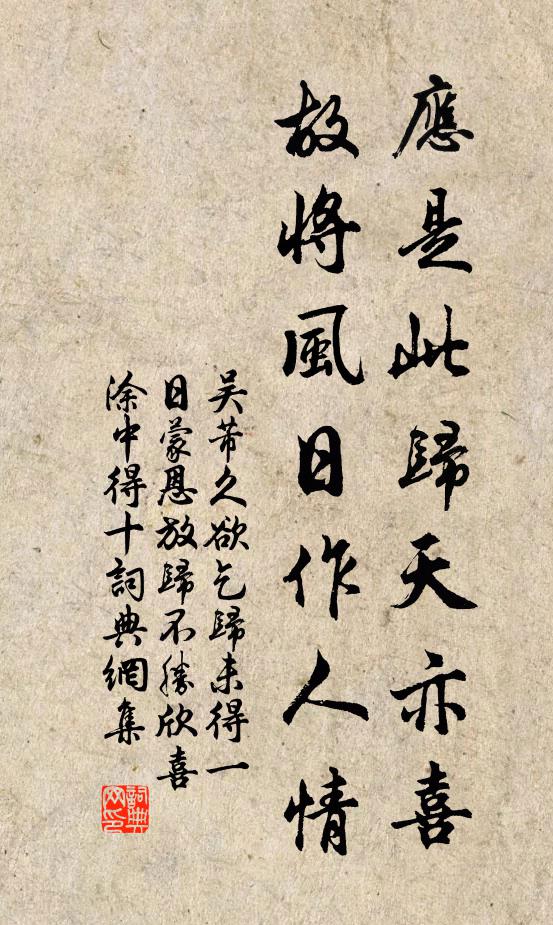 應是此歸天亦喜
故將風日作人情
吴芾久欲乞歸未得一
日蒙恩放歸不勝欣喜
涂中得十詞典網集
詞典
网印